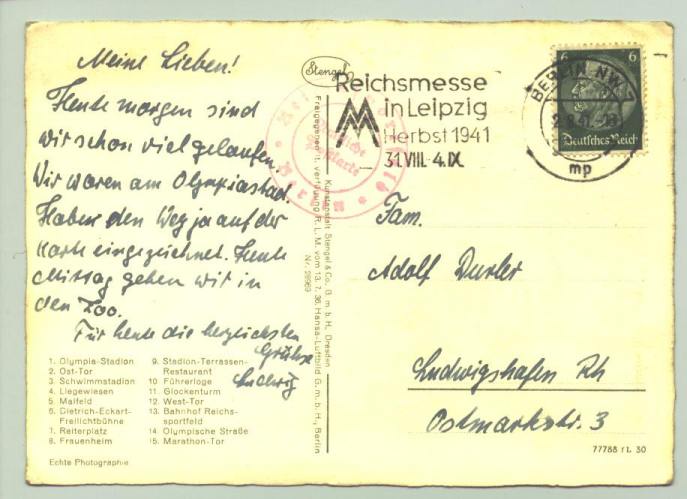 Meine Lieben!
Heute morgen sind
wir schon viel gelaufen.
Wir waren am Olympiastad.
Haben den Weg ja auf der
Karte eingezeichnet. Heute
Mittag gehen wir in
den Zoo.
Für heute die herzlichsten
Grüße
Ludwig
1. Olympia-Stadion
2. Ost-Tor
3. Schwimmstadion
4. Liegewiesen
5. Maifeld
6. Dietrich-Eckart-
Freilichtbühne
7. Reiterplatz
8. Frauenheim
9. Stadion-Terrassen-
Restaurant
10 Führerloge
11. Glockenturm
12. West-Tor
13. Bahnhof Reichs-
sportfeld
14 Olympische Straße
15. Marathon-Tor
Echte Photographie
Stengel
Freigegeben lt. Verfügung R. L. M. vom 13. 7. 36. Hansa-Luftbild G. m. b. H., Berlin
Kunstanstalt Stengel & Co. G. m. b. H., Dresden
Nr. 28969
Postkarte
Reichsmesse
in Leipzig
Herbst 1941
31.VIII.-4.IX.
BERLIN NW
mp
6 6
Deutsches Reich
Fam.
Adolf Durler
Ludwigshafen Rh
Ostmarkstr. 3
77788 r L 30